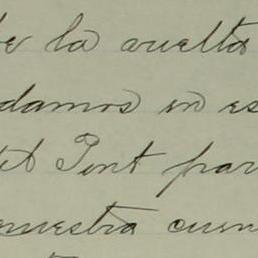 de la vuelta
damos en es
tit Pont par
nuestra cuen